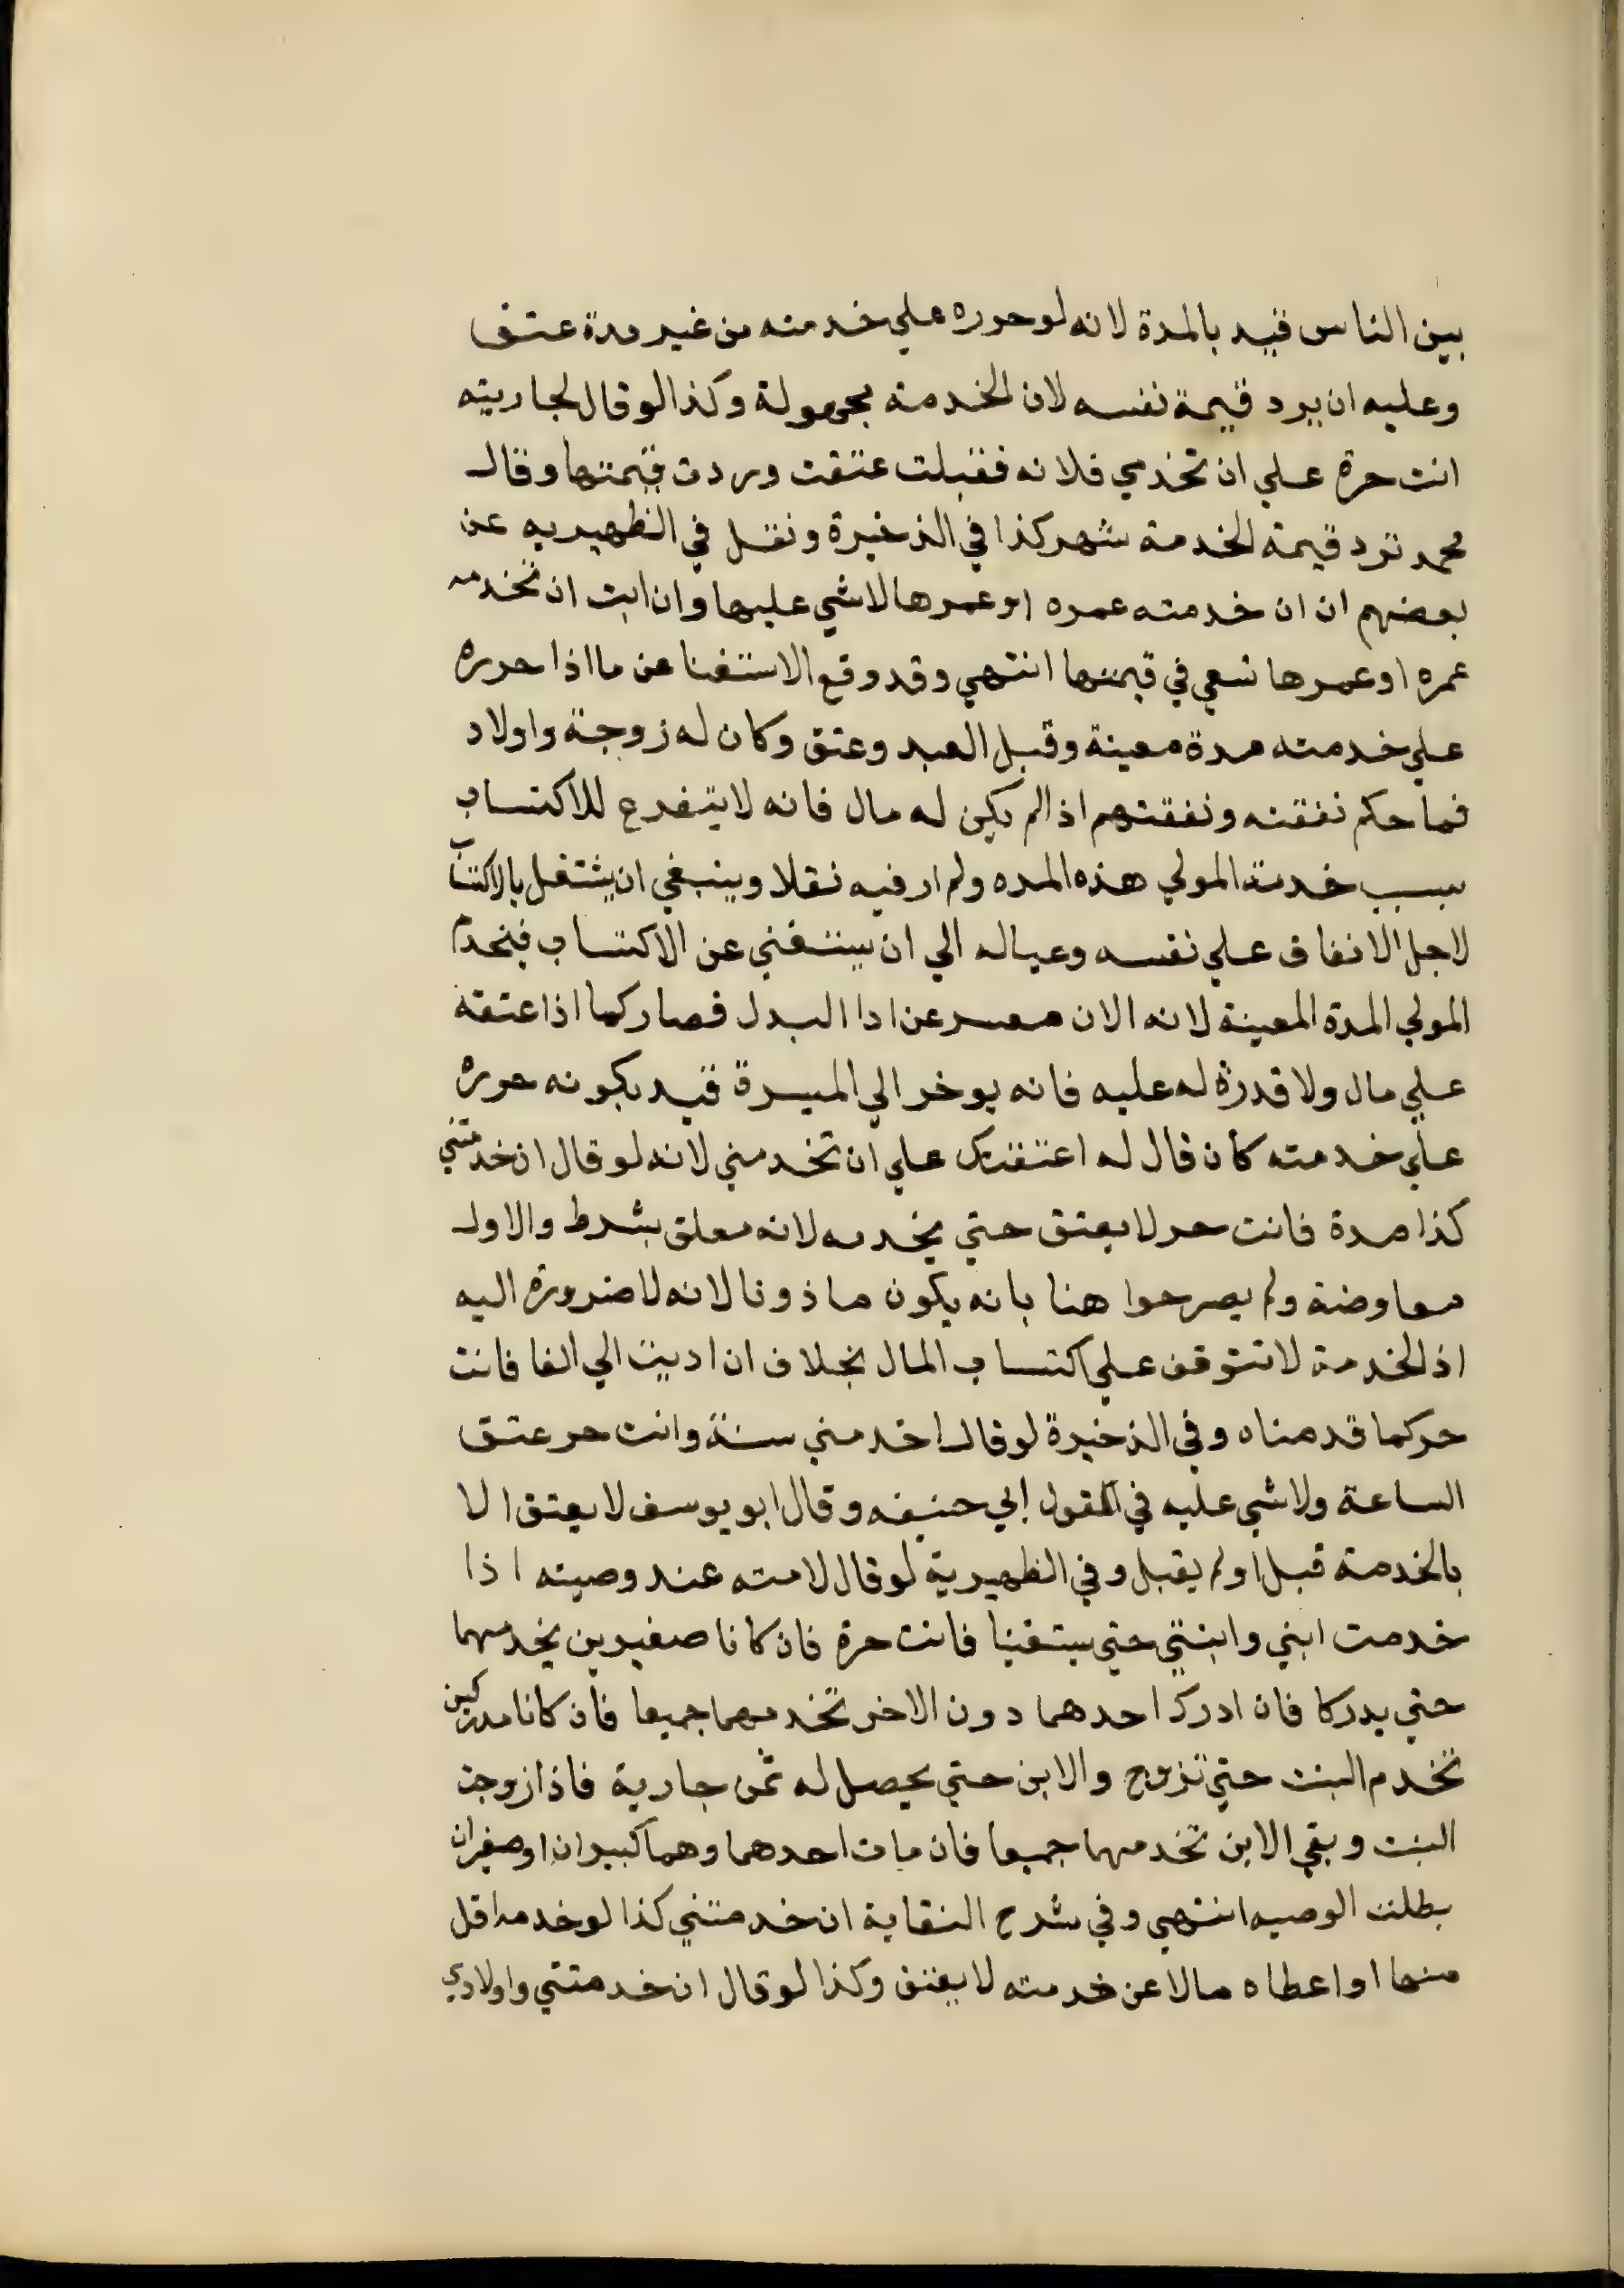 بين الناس قيد بالمدة لانه لو حرره علي خدمته من غير مدة عتق
وعليه ان يرد قيمة نفسه لان الخدمة مجهولة وكذا لو قال لجاريته
انت حرة علي ان تخدمي فلانه فقبلت عتقت وردت قيمتها وقال
محمد ترد قيمة الخدمة شهر كذا في الذخيرة ونقل في الظهيريه عن
بعضهم ان ان خدمته عمره او عمرها لا شي عليها وان ابت ان تخدمه
عمره او عمرها تسعي في قيمتها انتهي وقد وقع الاستفتا عن ما اذا حرره
علي خدمته مدة معينة وقبل العبد وعتق وكان له زوجة واولاد
فما حكم نفقته ونفقتهم اذا لم يكن له مال فانه لا يتفرع للاكتساب
سبب خدمة المولي هذه المده ولم ار فيه نقلا وينبغي ان يشتغل بالاكتساب
لاجل الانفاق علي نفسه وعياله الي ان يستغني عن الاكتساب فيخدم
المولي المدة المعينة لانه الان معسر عن ادا البدل فصار كما اذا عتقه
علي مال ولا قدرة له عليه فانه يوخر الي الميسرة قيد بكونه حرره
علي خدمته كان قال له اعتقتك علي ان تخدمني لانه لو قال ان خدمتني
كذا مدة فانت حر لا يعتق حتي يخدمه لانه معلق بشرط والاول
معاوضة ولم يصرحوا هنا بانه يكون ماذونا لانه لا ضرورة اليه
اذ الخدمة لا تتوقف علي اكتساب المال بخلاف ان اديت الي الفا فانت
حر كما قدمناه وفي الذخيرة لو قال اخدمني سنة وانت حر عتق
الساعة ولا شي عليه في القول ابي حنيفه وقال ابو يوسف لا يعتق الا
بالخدمة قبل او لم يقبل وفي الظهيرية لو قال لامته عند وصيته اذا
خدمت ابني وابنتي حتي يستغنيا فانت حرة فان كانا صغيرين يخدمهما
حتي يدركا فان ادرك احدهما دون الاخر تخدمهما جميعا فان كانا مدركين
تخدم البنت حتي تزوج والابن حتي يحصل له ثمن جارية فاذا زوجت
البنت وبقي الابن تخدمهما جميعا فان مات احدهما وهما كبيران او صغيران
بطلت الوصيه انتهي وفي شرح النقاية ان خدمتني كذا لو خدمه اقل
منها او اعطاه مالا عن خدمته لا يعتق وكذا لو قال ان خدمتني واولادي